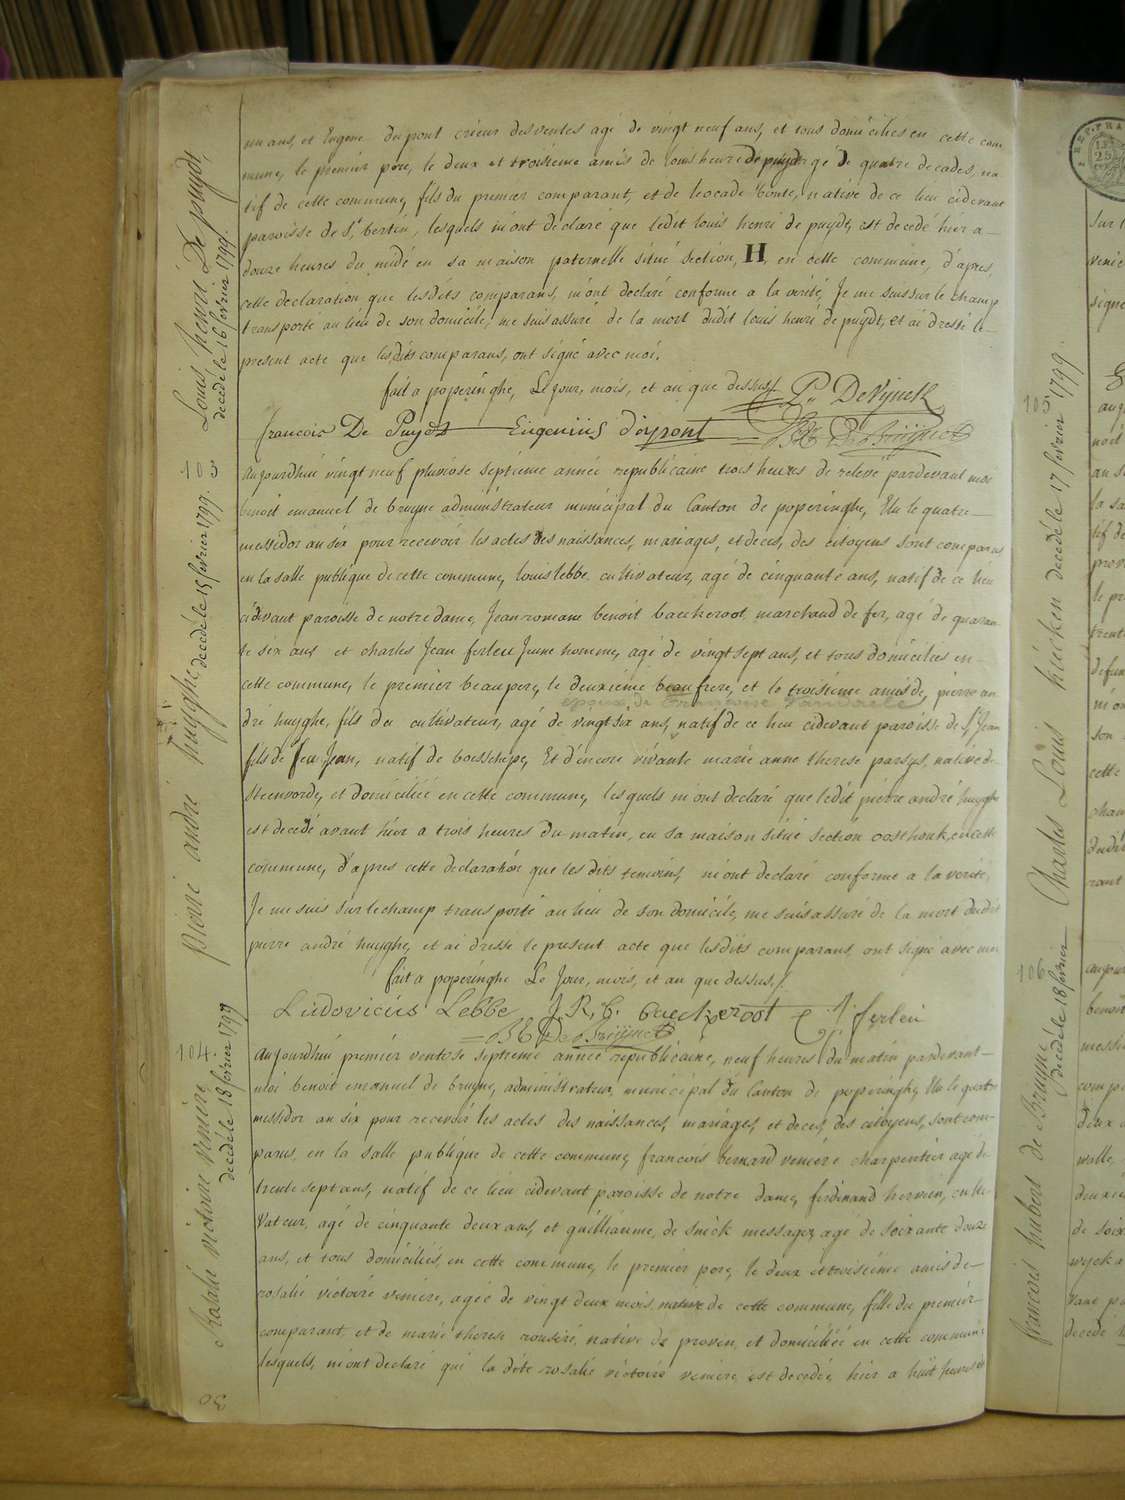 Louis henri De puydt,
decedé le 16 février 1799.
un ans, et Eugene dupont crieur des ventes agé de vingt neuf ans, et tous domiciliés en cette com
mune, le premier pere, le deux et troisieme amis de louis henri de puydt agé de quatre decades, na
tif de cette commune, fils du premier comparant, et de leocade bonte, native de ce lieu cidevant
paroisse de St. bertin, lesquels m'ont declaré que ledit louis henri de puydt, est decedé hier a
douze heures du midé en sa maison paternelle situé section, H, en cette commune, d'apres,
cette declaration que lesdits comparans, m'ont declaré conforme a la verité, Je me suis sur le champ
transporté au lieu de son domicile, me suis assuré de la mort dudit louis henri de puydt, et ai dressé le
present acte que lesdits comparans, ont signé avec moi.
fait a poperinghe, Le jour, mois, et an que dessus,/.
francois De Puydt Eugenius dupont
103
pierre andré huyghe decedé le 15 février 1799.
aujourdhui vingt neuf pluviose septieme année republicaine trois heures de relevé pardevant moi
benoit emanuel de bruyne administrateur municipal du Canton de poperinghe, Elu le quatre
messidor an six pour recevoir les actes des naissances, mariages, et deces, des citoyens sont comparus
en la salle publique de cette commune, louis lebbe cultivateur, agé de cinquante ans, natif de ce lieu
cidevant paroisse de notre dame, Jean romane benoit baeckeroot, marchand de fer, agé de quaran
te six ans et charles Jean ferleu Jeune homme, agé de vingt sept ans, et tous domiciliées en
cette commune, le premier beaupere, le deuxieme beaufrere, et le troisieme amis de, pierre an
epoux de
dré huyghe, fils du cultivateur, agé de vingt six ans, natif de ce lieu cidevant paroisse de St. Jean
fils de feu Jean, natif de boesschepe, Et d'encore vivante marie anne therese parsys, native de
steenvorde, et domiciliée en cette commune, lesquels m'ont declaré que ledit pierre andré huyghe
est decedé avant hier a trois heures du matin, en sa maison situé section oosthouk, en cette
commune, d'apres cette declaration que les dits temoins, m'ont declaré conforme a la verité,
Je me suis sur le champ transporté au lieu de son domicile, me suis assuré de la mort dudit
pierre andré huyghe, et ai dresse le present acte que lesdits comparans, ont signé avec moi
fait a poperinghe Le Jour, mois, et an que dessus,/.
Ludovicus Lebbe J. R. B. baeckeroot C. J. ferleu
104.
Rosalie victoire veniere
decedé le 18 février 1799
aujourdhui premier ventose septieme année republicaine, neuf heures du matin pardevant
moi benoit emanuel de bruyne, administrateur, municipal du Canton de poperinghe, Elu le quatre
messidor an six pour recevoir les actes des naissances, mariages, et deces, des citoyens, sont com
parus, en la salle publique de cette commune, francois bernard veniere charpentier agé de
trente sept ans, natif de ce lieu cidevant paroisse de notre dame, ferdinand hervein, culti
vateur, agé de cinquante deux ans, et guilliaume, de snick messager, agé de soixante douze
ans, et tous domiciliés, en cette commune, le premier pere, le deux et troisieme amis de
rosalie victoire veniere, agée de vingt deux mois, native de cette commune, fille du premier
comparant, et de marie therese rousere, native de proven, et domiciliée en cette commune
lesquels, m'ont declaré que la dite rosalie victoire veniere, est decedée hier a huit heures
30
105
Charles Louis decedé le 17 février 1799.
106
francois hubert de Bruyne
decedé le 18 février